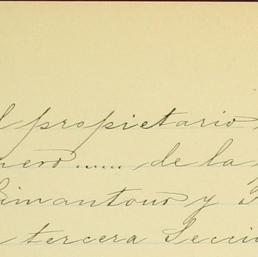 l propietario
nero ...... de la
Limantour y
tercera Secci